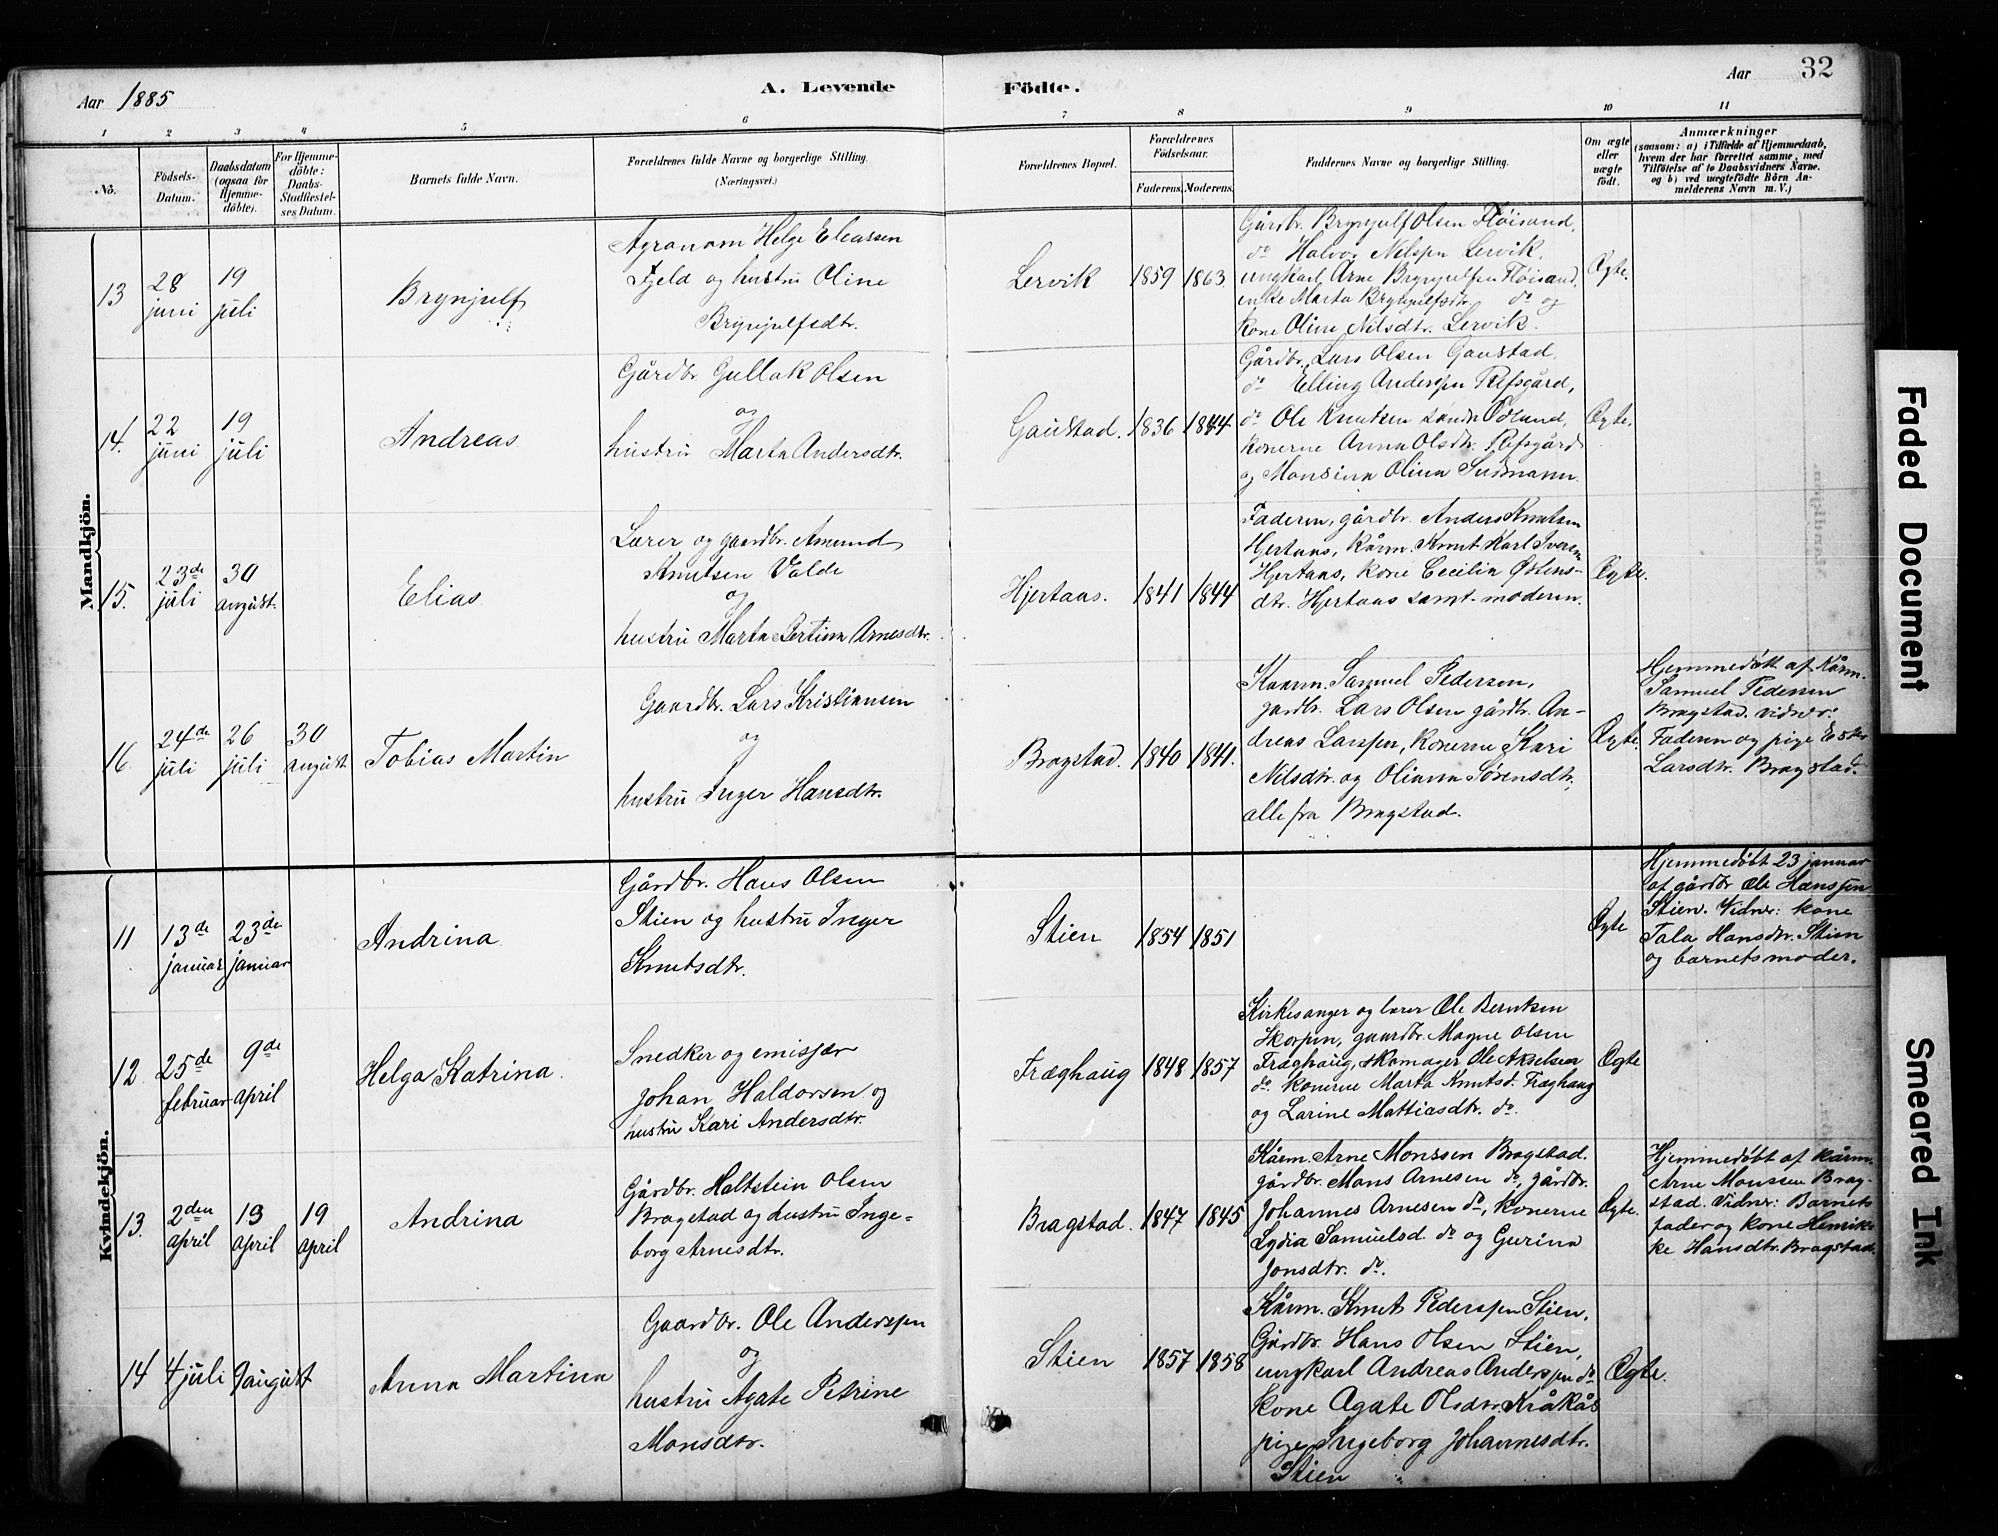 Aar 1885
A. Levende Födte.
Aar 32
1 2 3 4 5 6 7 8 9 10 11
No.
Födsels-Datum.
Daabsdatum (ogsaa for Hjemme-döbte).
For Hjemme-döbte: Daabs-Stadfæstel-ses Datum.
Barnets fulde Navn.
Forældrenes fulde Navne og borgerlige Stilling. (Næringsvei.)
Forældrenes Bopæl.
Forældrenes Födselsaar.
Faderens. Moderens.
Faddernes Navne og borgerlige Stilling.
Om ægte eller uægte födt.
Anmærkninger
(saasom: a) i Tilfælde af Hjemmedaab, hvem der har forrettet samme, med Tilföielse af to Daabsvidners Navne. og b) ved uægtefödte Börn An-melderens Navn m. V.)
Mandkjön.
13 28 juni 19 juli
Brynjulf
Agronom Helge Eleassen
Fjeld og hustru Oline
Brynjulfsdtr.
Lervik 1859 1863
Gårdbr. Brynjulf Olsen Fløisand,
do Halvor Nilssen Lervik,
ungkarl Arne Brynjulfsen Fløisand,
enke Marta Brynjulfsdtr. do og
kone Oline Nilsdtr. Lervik.
Ægte.
14. 22 juni 19 juli
Andreas
Gårdbr. Gullak Olsen
og
hustru Marta Andersdtr.
Gaustad. 1836 1844
Gårdbr. Lars Olsen Gaustad,
do Elling Anderssen Refsgård,
do Ole Knutsen søndre Ødland,
konerne Anna Olsdtr. Refsgård
og Monsina Olina Susmann.
Ægte.
15. 23de juli 30 august.
Elias
Lærer og gaardbr. Amund
Knutsen Valde
og
hustru Marta Bertina Arnesdtr.
Hjertaas. 1841 1844
Faderen, gårdbr. Anders Knutsen
Hjertaas, kårm. Knut Karl Iversen
Hjertaas, kone Cecilia Østens-
dtr. Hjertaas samt moderen.
Ægte.
16. 24de juli 26 juli 30 august
Tobias Martin
Gaardbr. Lars Kristiansen
og
hustru Inger Hansdtr.
Bragstad. 1840 1841.
Kaarm. Samuel Pedersen,
gardbr. Lars Olsen gårdbr. An-
dreas Larssen, konerne Kari
Nilsdtr. og Oliana Sørensdtr.,
alle fra Bragstad.
Ægte.
Hjemmedøbt af kårm.
Samuel Pedersen
Bragstad. vidner:
Faderen og pige Ester
Larsdtr. Bragstad.
Kvindekjön.
11 13de januar 23de januar
Andrina
Gårdbr. Hans Olsen
Stien og hustru Inger
Knutsdtr.
Stien 1854 1851
Ægte
Hjemmedøbt 23 januar
af gårdbr Ole Hanssen
Stien. Vidner: kone
Tala Hansdtr. Stien
og barnets moder.
12. 25de februar 9de april
Helga Katrina.
Snedker og emissær
Johan Haldorsen og
hustru Kari Andersdtr.
Fræghaug 1848 1857
Kirkesanger og lærer Ole Berntsen
Skorpen, gaardbr. Magne Olsen
Fræghaug, skomager Ole Akselsen
do konerne Marta Knutsd. Fræghaug
og Larine Mattiasdtr. do.
Ægte
13. 2den april 13 april 19 april
Andrina
Gårdbr. Haltstein Olsen
Bragstad og hustru Inge-
borg Arnesdtr.
Bragstad. 1847 1845
Kårm. Arne Monssen Bragstad.
gårdbr. Mons Arnesen do, gårdbr.
Johannes Arnesen do, konerne
Lydia Samuelsd. do og Gurina
Jonsdtr. do.
Ægte.
Hjemmedøbt af kårm.
Arne Monssen Brag-
stad. Vidner: Barnets
fader og kone Henrik-
ke Hansdtr. Bragstad.
14 4 juli 9 august
Anna Martina
Gaardbr. Ole Anderssen
og
hustru Agate Petrine
Monsdtr.
Stien 1857 1858
Kårm. Knut Pederssen Stien,
Gårdbr. Hans Olsen Stien,
ungkarl Andreas Anderssen do
kone Agate Olsdtr. Kråkås
pige Ingeborg Johannesdtr.
Stien
Ægte.
Faded Document
Smeared Ink